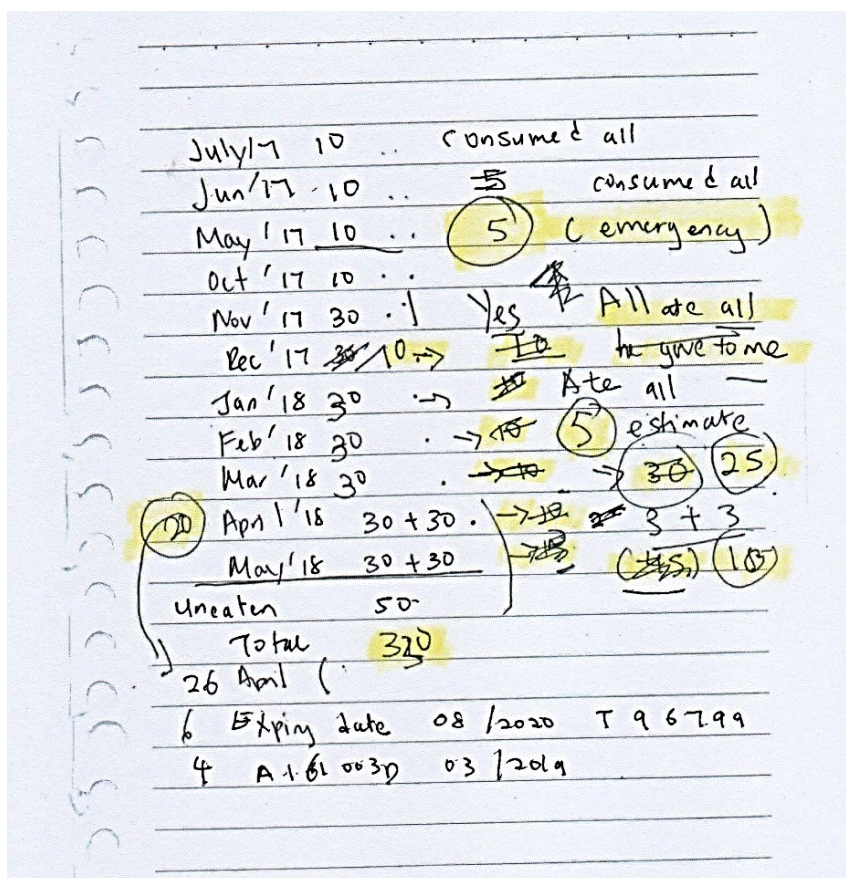 July/17 10 .. Consumed all
Jun'17 .10 .. 5 consumed all
May '17 10 .. 5 (emergency)
Oct '17 10 . .
Nov '17 30 . Yes All ate all
Dec '17 30/10 → 10 he give to me
Jan '18 30 → Ate all —
Feb '18 30 . → 10 5 estimate
Mar '18 30 . → 10 → 30 25
20 April '18 30 + 30 . → 3 + 3
May '18 30 + 30 →
Uneaten 50
Total
26 April (
6 Expiry date 08/2020 T 96799
4 03/2019